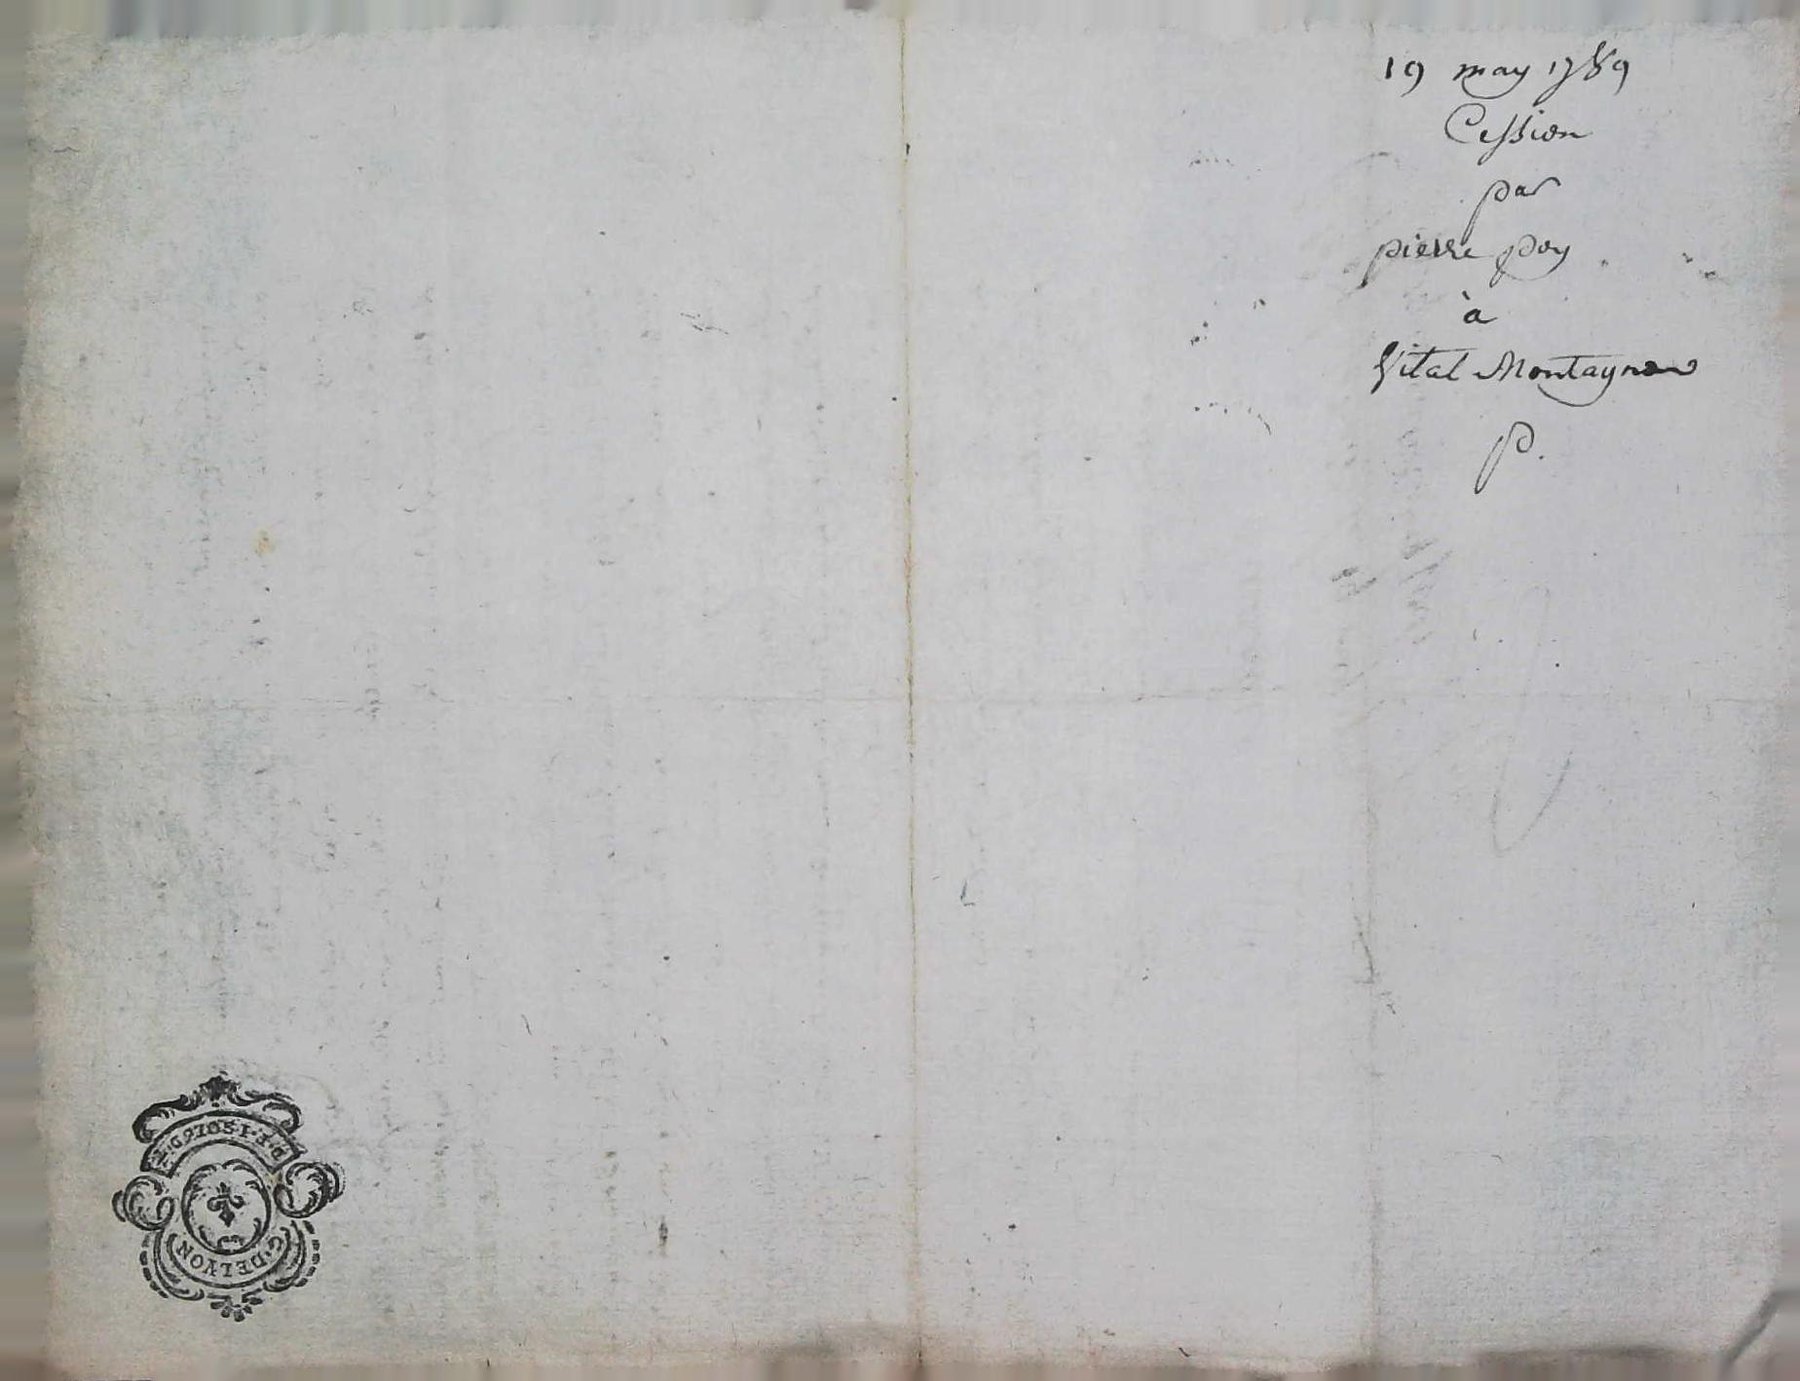 19 may 1789
Cession
par
pierre poy
à
Vital Montagnon
P.
G. DELYON